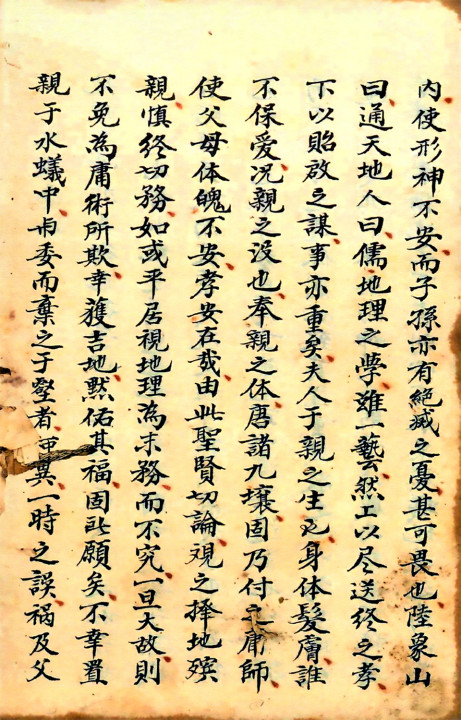 内使形神不安而子孫亦有絕滅之憂甚可畏也陸象山
曰通天地人曰儒地理之學雖一藝然工以尽送終之孝
下以貽啟之謀事亦重矣夫人于親之生也身体髮膚誰
不保爱况親之没也奉親之体厝諸九壤固乃付之庸師
使父母体魄不安孝安在哉由此聖賢切論視之擇地殯
親慎終切務如或平居視地理為末務而不究一旦大故則
不免為庸術所欺幸獲吉地黙佑其福固所願矣不幸置
親于水蟻中与委而棄之于壑者異一時之誤禍及父